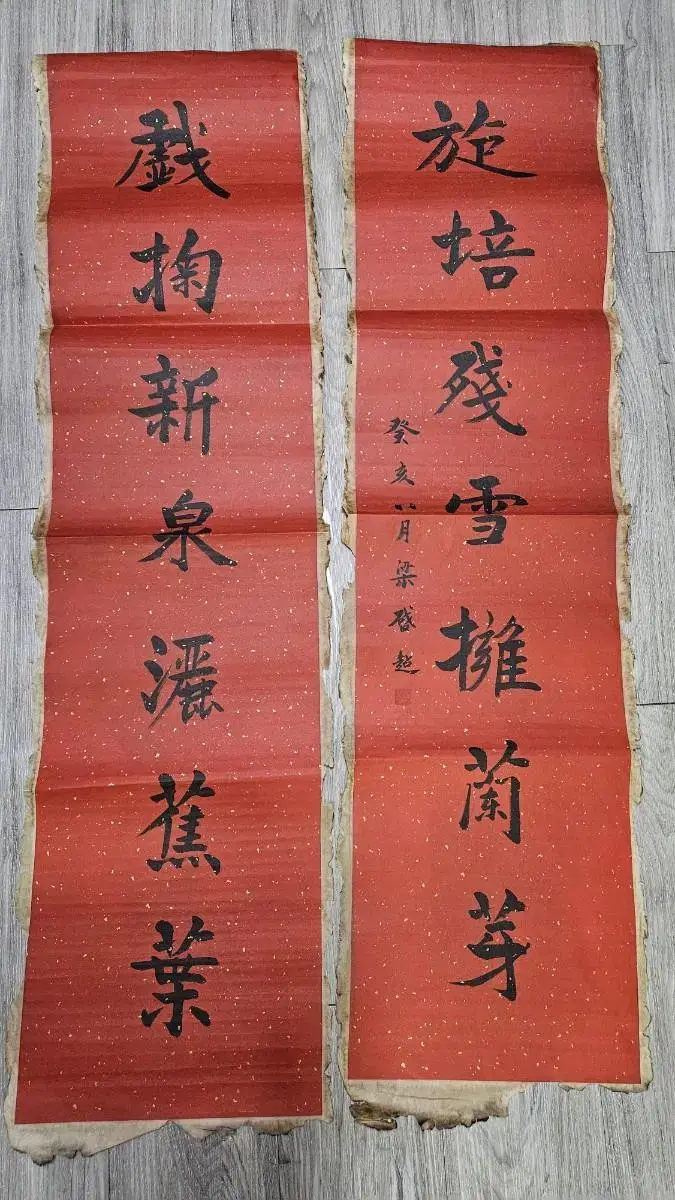 戱掬新泉灑蕉葉
施培殘雪擁蘭芽
癸亥八月梁啓超